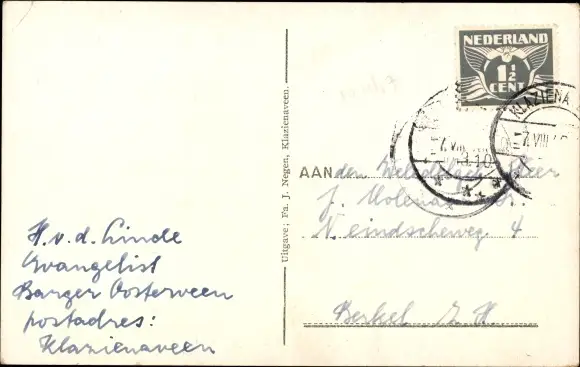 H. v. d. Linde
Evangelist
Barger Oosterveen
postadres:
Klazienaveen
Uitgave: Fa. J. Negen, Klazienaveen.
NEDERLAND
1½
CENT
KLAZIENA
7. VIII
7. VIII
AAN den Weledelach Heer
J. Molenaar
eindscheweg 4
Berkel Z. H.